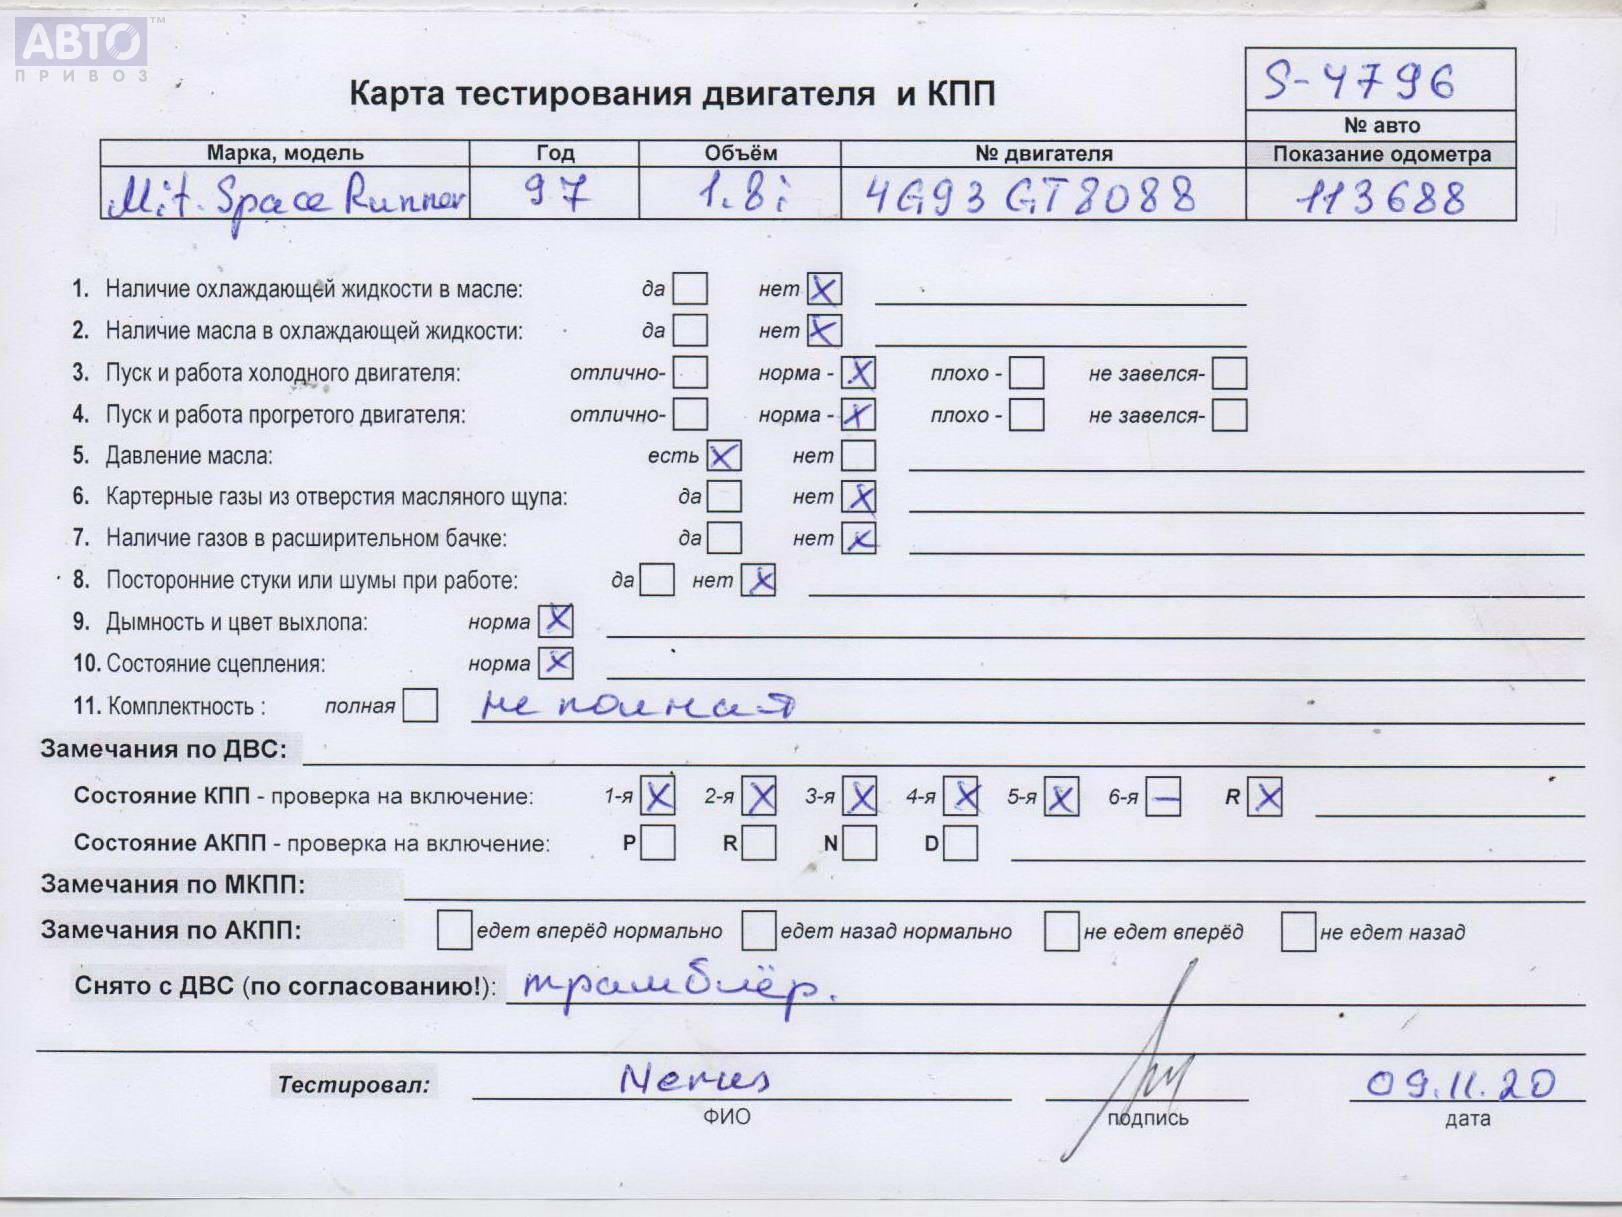 АВТО™
ПРИВОЗ
S-4796
Карта тестирования двигателя и КПП
№ авто
Марка, модель Год Объём № двигателя Показание одометра
Mit. Space Runner 97 1.8i 4G93 GT8088 113688
1. Наличие охлаждающей жидкости в масле: да нет X
2. Наличие масла в охлаждающей жидкости: да нет X
3. Пуск и работа холодного двигателя: отлично- норма - X плохо - не завелся-
4. Пуск и работа прогретого двигателя: отлично- норма - X плохо - не завелся-
5. Давление масла: есть X нет
6. Картерные газы из отверстия масляного щупа: да нет X
7. Наличие газов в расширительном бачке: да нет X
8. Посторонние стуки или шумы при работе: да нет X
9. Дымность и цвет выхлопа: норма X
10. Состояние сцепления: норма X
11. Комплектность : полная не полная
Замечания по ДВС:
Состояние КПП - проверка на включение: 1-я X 2-я X 3-я X 4-я X 5-я X 6-я — R X
Состояние АКПП - проверка на включение: P R N D
Замечания по МКПП:
Замечания по АКПП: едет вперёд нормально едет назад нормально не едет вперёд не едет назад
Снято с ДВС (по согласованию!): трамблёр.
Тестировал: 09.11.20
ФИО подпись дата